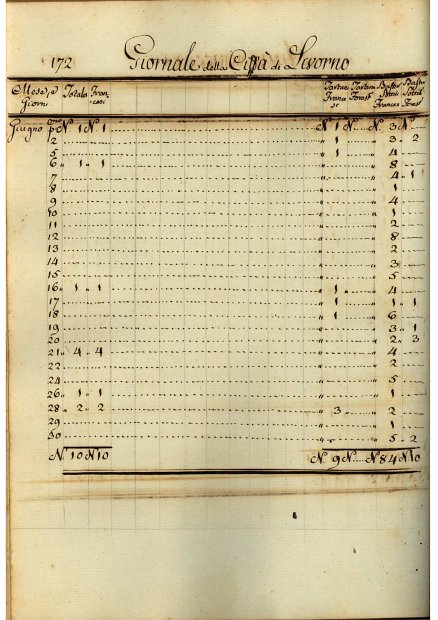 172 Giornale della Città di Livorno
Mese, e Giorni Totale Francesi Tartane Francesi Tartane Bastti Pettri Francesi
Giugno p.mo N. 1 N. 1 N. 1 N. N. 3 N.
2 " 1 " 3 " 2
5 " 1 " 4
6 " 1 " 1 " " 8
7 " " 4 " 1
8 " " 1
9 " " 4
10 " " 1
11 " " 2
12 " " 8
13 " " 2
14 " " 3
15 " " 5
16 " 1 " 1 " 1 " 4
17 " 1 " 1 " 1
18 " 1 " 6
19 " " 3 " 1
20 " " 2 " 3
21 " 4 " 4 " " 4
22 " " 2
24 " " 5
26 " 1 " 1 " " 1
28 " 2 " 2 " 3 " 2
29 " " 1
30 " " 5 " 2
N. 10 N. 10 N. 9 N. N. 84 N. 10